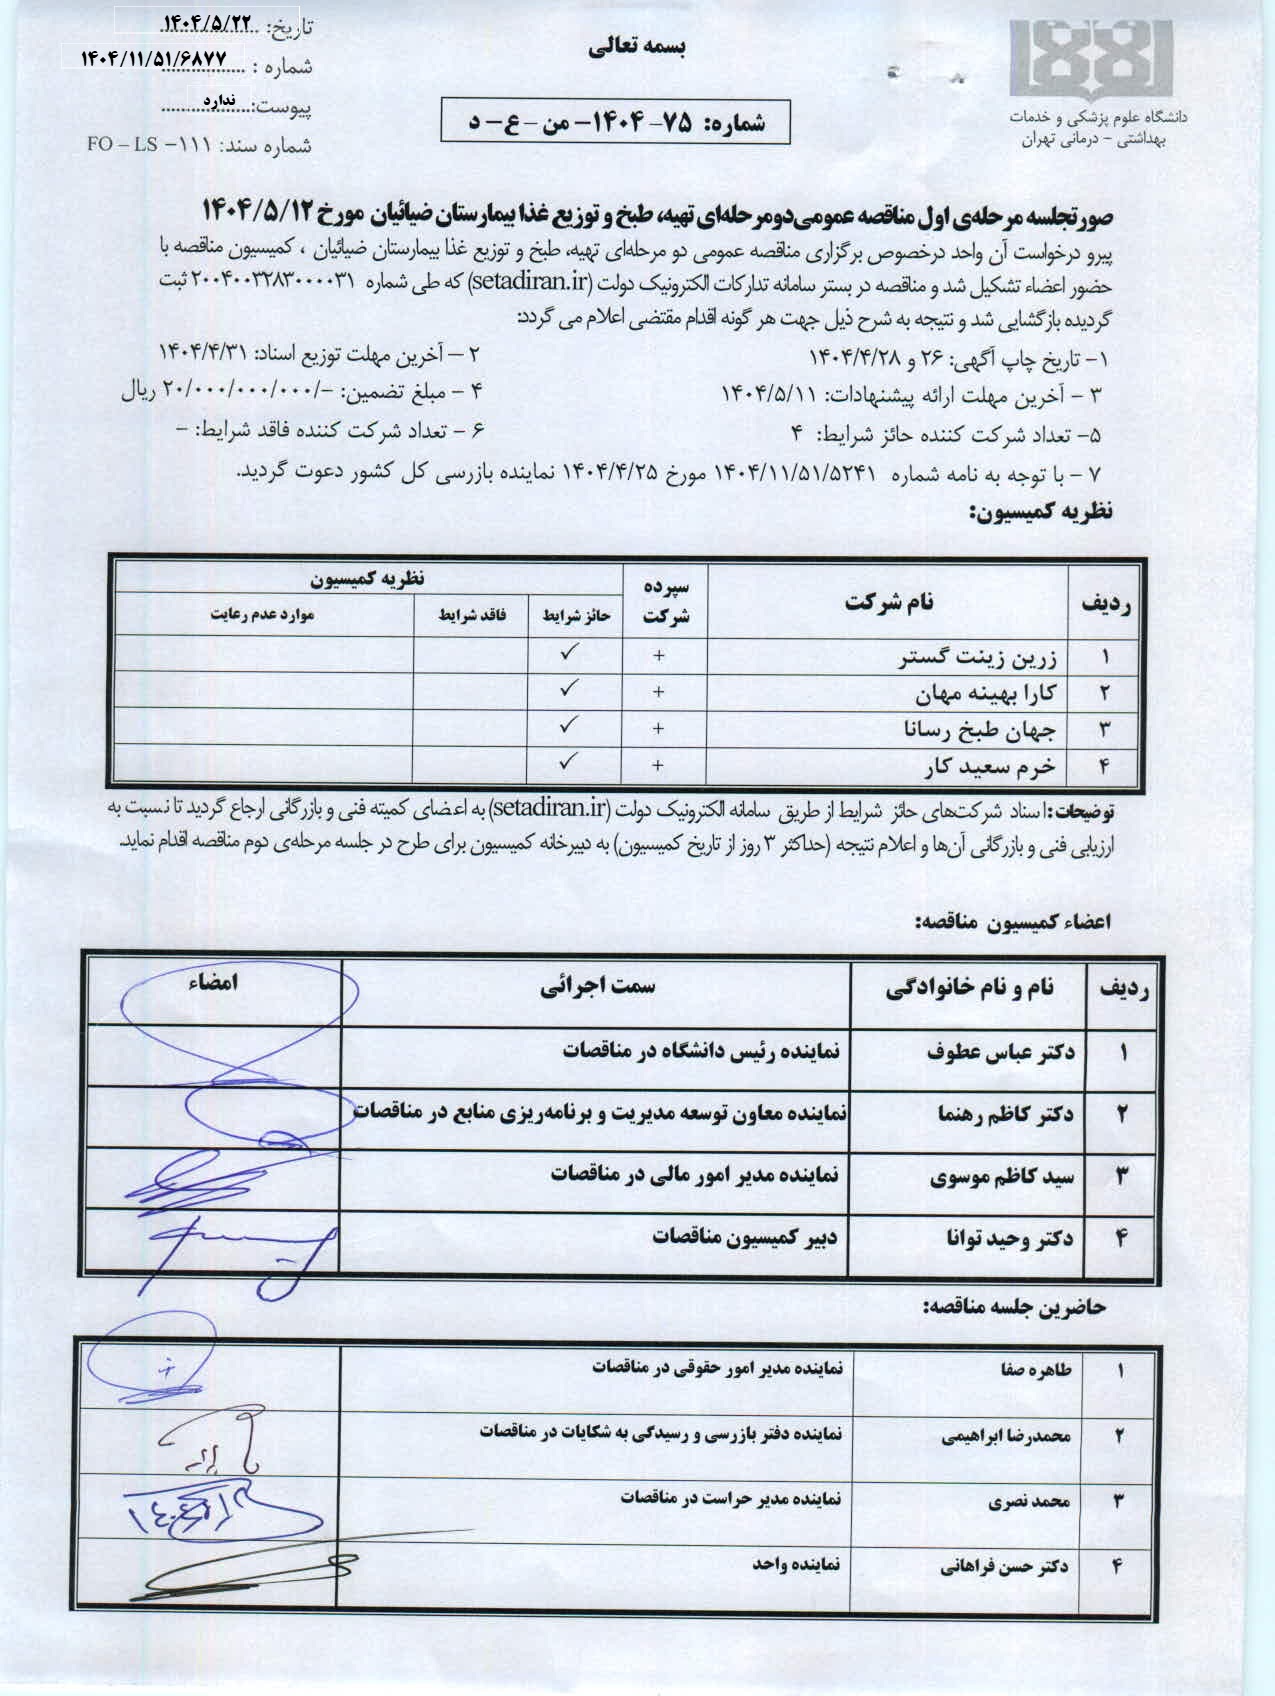 بسمه تعالی
دانشگاه علوم پزشکی و خدمات
بهداشتی – درمانی تهران
تاریخ: ۱۴۰۴/۵/۲۲
شماره : ۱۴۰۴/۱۱/۵۱/۶۸۷۷
پیوست: ندارد
شماره سند: FO – LS –۱۱۱
شماره: ۷۵- ۱۴۰۴- من - ع- د
صورتجلسه مرحله‌ی اول مناقصه عمومی دومرحله‌ای تهیه، طبخ و توزیع غذا بیمارستان ضیائیان مورخ ۱۴۰۴/۵/۱۲
پیرو درخواست آن واحد درخصوص برگزاری مناقصه عمومی دو مرحله‌ای تهیه، طبخ و توزیع غذا بیمارستان ضیائیان ، کمیسیون مناقصه با
حضور اعضاء تشکیل شد و مناقصه در بستر سامانه تدارکات الکترونیک دولت (setadiran.ir) که طی شماره ۲۰۰۴۰۰۳۲۸۳۰۰۰۰۳۱ ثبت
گردیده بازگشایی شد و نتیجه به شرح ذیل جهت هر گونه اقدام مقتضی اعلام می گردد:
۱- تاریخ چاپ آگهی: ۲۶ و ۱۴۰۴/۴/۲۸
۲ – آخرین مهلت توزیع اسناد: ۱۴۰۴/۴/۳۱
۳ - آخرین مهلت ارائه پیشنهادات: ۱۴۰۴/۵/۱۱
۴ - مبلغ تضمین: -/۲۰/۰۰۰/۰۰۰/۰۰۰ ریال
۵- تعداد شرکت کننده حائز شرایط: ۴
۶ - تعداد شرکت کننده فاقد شرایط: -
۷ - با توجه به نامه شماره ۱۴۰۴/۱۱/۵۱/۵۲۴۱ مورخ ۱۴۰۴/۴/۲۵ نماینده بازرسی کل کشور دعوت گردید.
نظریه کمیسیون:
ردیف نام شرکت سپرده شرکت نظریه کمیسیون
حائز شرایط فاقد شرایط موارد عدم رعایت
۱ زرین زینت گستر + ✓
۲ کارا بهینه مهان + ✓
۳ جهان طبخ رسانا + ✓
۴ خرم سعید کار + ✓
توضیحات: اسناد شرکت‌های حائز شرایط از طریق سامانه الکترونیک دولت (setadiran.ir) به اعضای کمیته فنی و بازرگانی ارجاع گردید تا نسبت به
ارزیابی فنی و بازرگانی آن‌ها و اعلام نتیجه (حداکثر ۳ روز از تاریخ کمیسیون) به دبیرخانه کمیسیون برای طرح در جلسه مرحله‌ی دوم مناقصه اقدام نماید.
اعضاء کمیسیون مناقصه:
ردیف نام و نام خانوادگی سمت اجرائی امضاء
۱ دکتر عباس عطوف نماینده رئیس دانشگاه در مناقصات
۲ دکتر کاظم رهنما نماینده معاون توسعه مدیریت و برنامه‌ریزی منابع در مناقصات
۳ سید کاظم موسوی نماینده مدیر امور مالی در مناقصات
۴ دکتر وحید توانا دبیر کمیسیون مناقصات
حاضرین جلسه مناقصه:
۱ طاهره صفا نماینده مدیر امور حقوقی در مناقصات
۲ محمدرضا ابراهیمی نماینده دفتر بازرسی و رسیدگی به شکایات در مناقصات
۳ محمد نصری نماینده مدیر حراست در مناقصات
۴ دکتر حسن فراهانی نماینده واحد